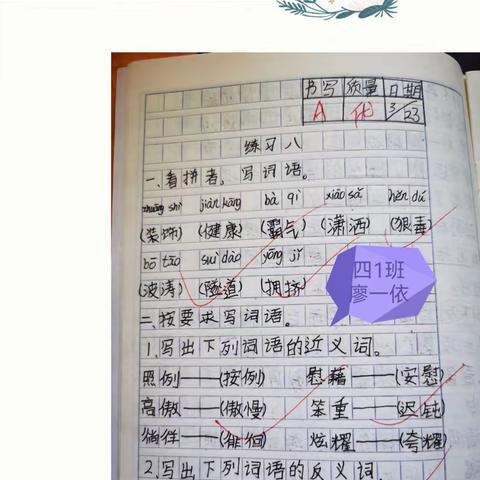 书写 质量 日期
A 优 3/23
练习八
一、看拼音,写词语。
zhuāng shì jiàn kāng bà qì xiāo sǎ hěn dú
(装饰) (健康) (霸气) (潇洒) (狠毒)
bō tāo suì dào yōng jǐ
(波涛) (隧道) (拥挤)
四1班
廖一依
二、按要求写词语。
1.写出下列词语的近义词。
照例——(按例) 慰藉——(安慰)
高傲——(傲慢) 笨重——(迟钝)
徜徉——(徘徊) 炫耀——(夸耀)
2.写出下列词语的反义词.